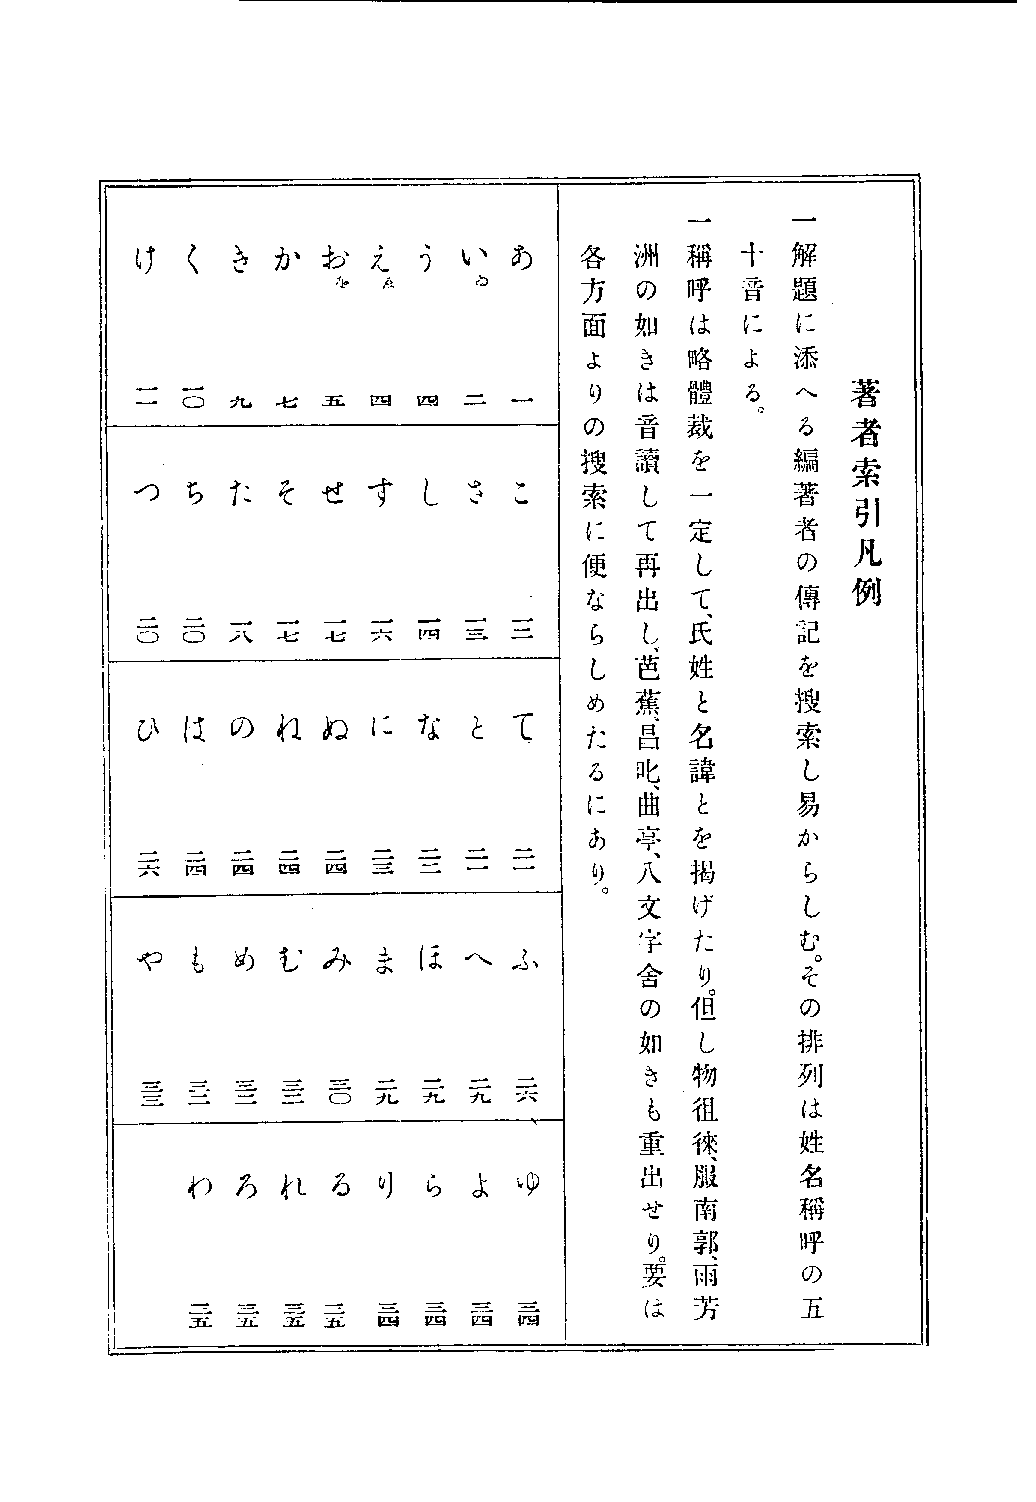 著者索引凡例
一解題に添へる編著者の傳記を搜索し易からしむ。その排列は姓名稱呼の五
十音による。
一稱呼は略體裁を一定して、氏姓と名諱とを揭げたり。但し物徂徠、服南郭、雨芳
洲の如きは音讀して再出し、芭蕉、昌叱、曲亭、八文字舍の如きも重出せり。要は
各方面よりの搜索に便ならしめたるにあり。
あ 一
いゐ 二
う 四
えゑ 四
おを 五
か 七
き 九
く 一〇
け 一一
こ 一二
さ 一三
し 一四
す 一六
せ 一七
そ 一七
た 一八
ち 二〇
つ 二〇
て 二一
と 二一
な 二二
に 二三
ぬ 二四
ね 二四
の 二四
は 二四
ひ 二六
ふ 二六
へ 二九
ほ 二九
ま 二九
み 三〇
む 三二
め 三二
も 三二
や 三三
ゆ 三四
よ 三四
ら 三四
り 三四
る 三五
れ 三五
ろ 三五
わ 三五